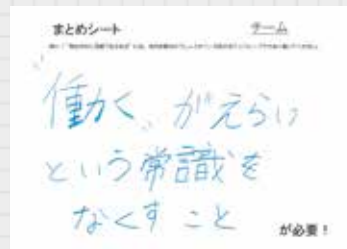 まとめシート チーム
“働く”がえらい
という常識を
なくすこと
が必要！